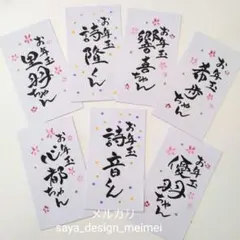 お年玉
里羽ちゃん
お年玉
詩隆くん
お年玉
響喜ちゃん
お年玉
希ちゃん
お年玉
心都ちゃん
お年玉
詩音くん
お年玉
優羽ちゃん
メルカリ
saya_design_meimei